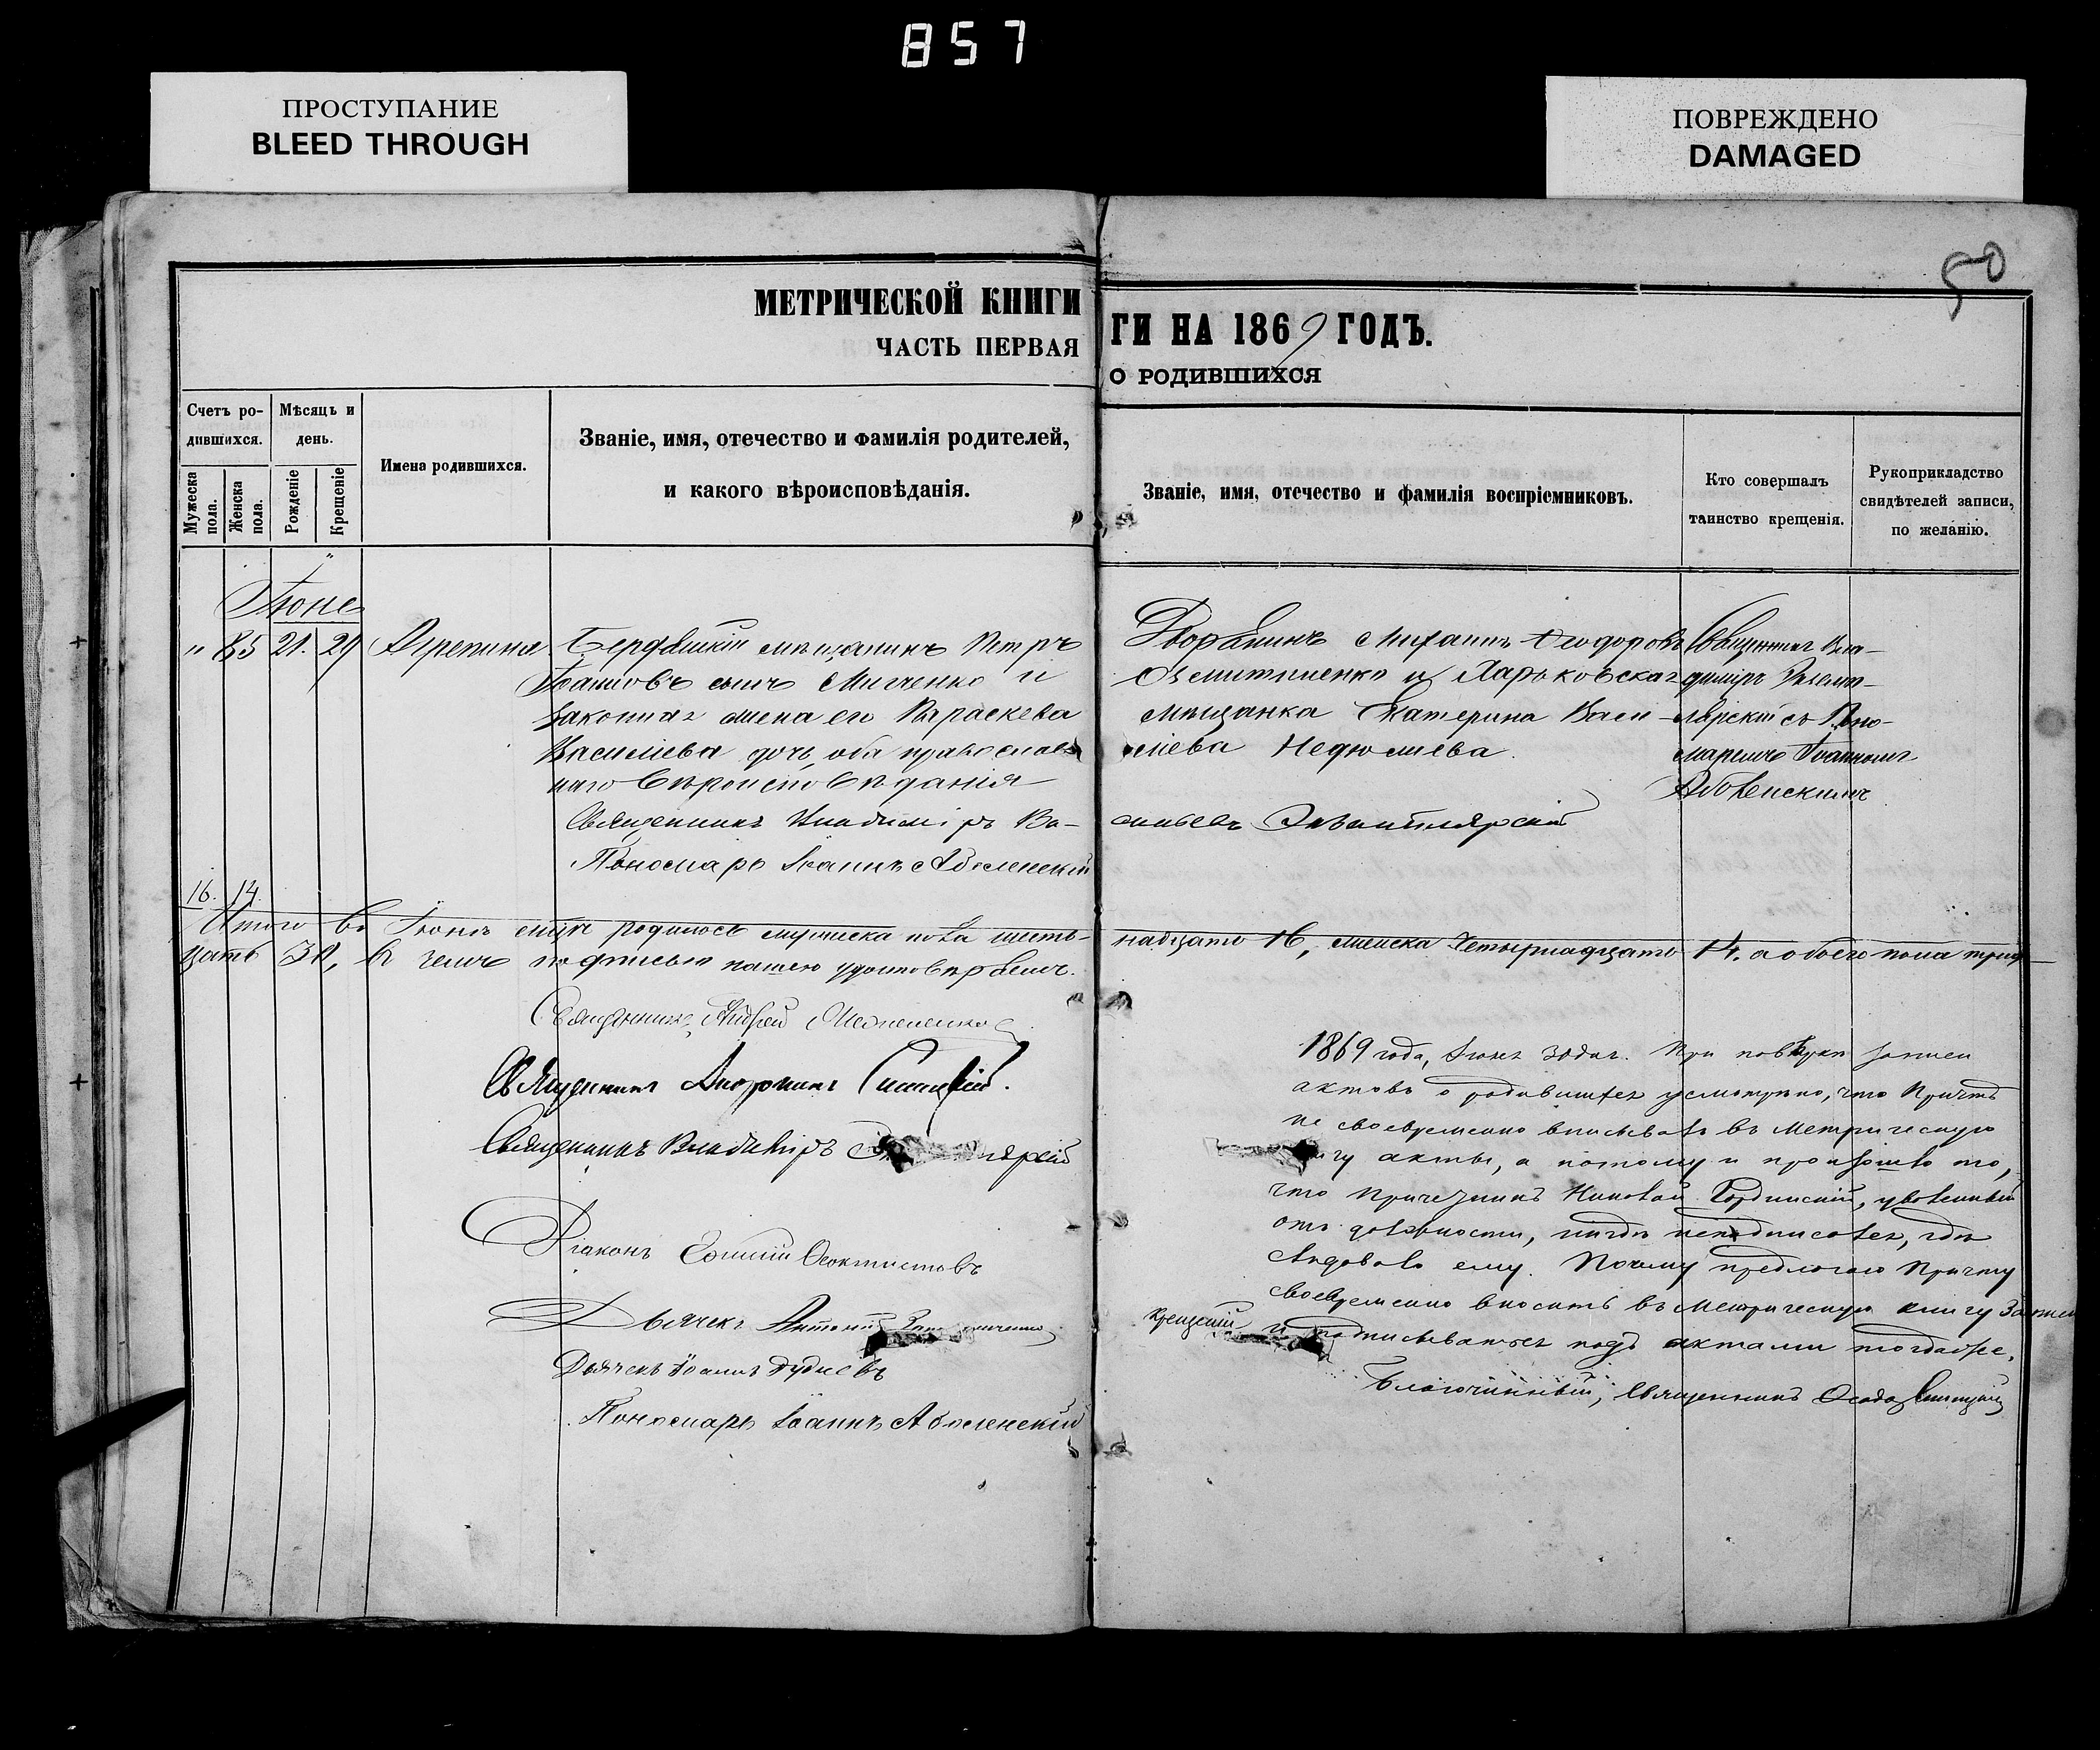 857
ПРОСТУПАНИЕ
BLEED THROUGH
ПОВРЕЖДЕНО
DAMAGED
50
МЕТРИЧЕСКОЙ КНИГИ
ЧАСТЬ ПЕРВАЯ
ГИ НА 1869 ГОДЪ.
О РОДИВШИХСЯ
Счетъ родившихся.
Мужеска пола.
Женска пола.
Мѣсяцъ и день.
Рожденіе
Крещеніе
Имена родившихся.
Званіе, имя, отечество и фамилія родителей,
и какого вѣроисповѣданія.
Званіе, имя, отечество и фамилія воспріемниковъ.
Кто совершалъ
таинство крещенія.
Рукоприкладство
свидѣтелей записи,
по желанію.
Іюне
" 85 21. 29 Агрепина
мѣщанинъ Петръ
сынъ и
законная жена его Параскева
Василіева дочь, оба православ
наго вѣроисповѣданія
Дворянинъ Михаилъ Феодоровъ
и Харьковская
мѣщанка Екатерина Васи-
ліева
Священникъ Вла-
диміръ
съ Поно-
маремъ Іоанномъ
Священникъ Владиміръ Ва-
сильевъ
Пономарь Іоаннъ Аболенскій
16. 14.
Итого въ Іюнѣ м-цѣ родилось мужеска пола шест-
надцать 16, женска четырнадцать 14. а обоего пола трид-
цать 30, въ чемъ подписью нашею удостовѣряемъ.
Священникъ Андрей
Священникъ
Священникъ Владиміръ
Діаконъ Феоктистовъ
Дьячекъ Антоній
Дьячекъ Іоаннъ
Пономарь Іоаннъ Аболенскій
1869 года, Іюня 30 дня. При повѣркѣ записи
актовъ о родившихся усмотрѣно, что Причтъ
не своевременно вписывалъ въ Метрическую
книгу акты, а потому и произошло то,
что Причетникъ Николай уволенный
отъ должности, нигдѣ неподписался, гдѣ
слѣдовало ему. Почему предлагаю Причту
своевременно вносить въ Метрическую книгу записи
крещеній и подписываться подъ актами тогда же.
Благочинный, Священникъ